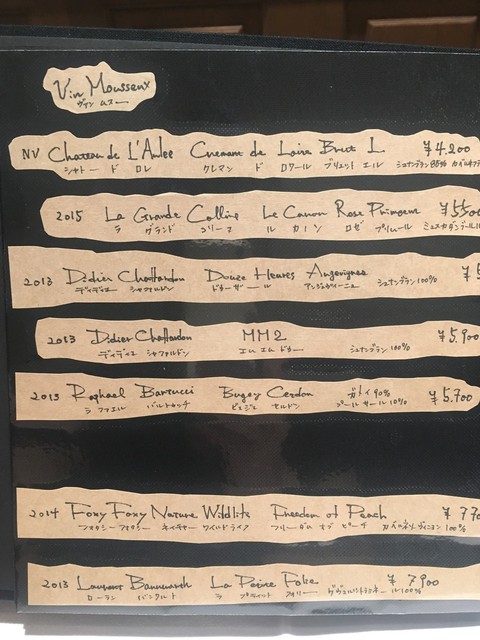 Vin Mousseux
ヴァン ムスー
NV Chateau de L'Aulee Cremant de Loire Brut L ¥4,200
シャトー ド ロレ クレマン ド ロワール ブリュット エル シュナンブラン
2015 La Grande Colline Le Canon Rose Primeur
ラ グランド コリーヌ ル カノン ロゼ プリムール
2013 Didier Chaffardon Douze Heures Angevignes
ディディエ シャファルドン ドゥーザール アンジュヴィーニュ シュナンブラン 100%
2013 Didier Chaffardon MM2 ¥5,900
ディディエ シャファルドン エム エム ドゥー シュナンブラン 100%
2013 Raphael Bartucci Bugey Cerdon ガメイ 90% ¥5,700
ラファエル バルトゥッチ ビュジェ セルドン プールサール 10%
2014 Foxy Foxy Nature Wildlife Freedom of Peach
フォクシーフォクシー ネイチャー ワイルドライフ フリーダム オブ ピーチ 100%
2013 Laurent Bannwarth La Petite Folie ¥7,900
ローラン バンワルト ラ プティット フォリー ゲヴュルツトラミネール 100%